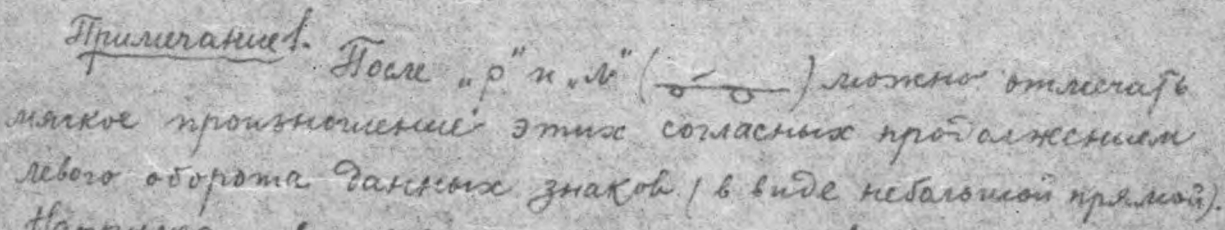 Примечание 1.
После „р“ и „л“ ( ) можно отмечать
мягкое произношение этих согласных продолжением
левого оборота данных знаков (в виде небольшой прямой).